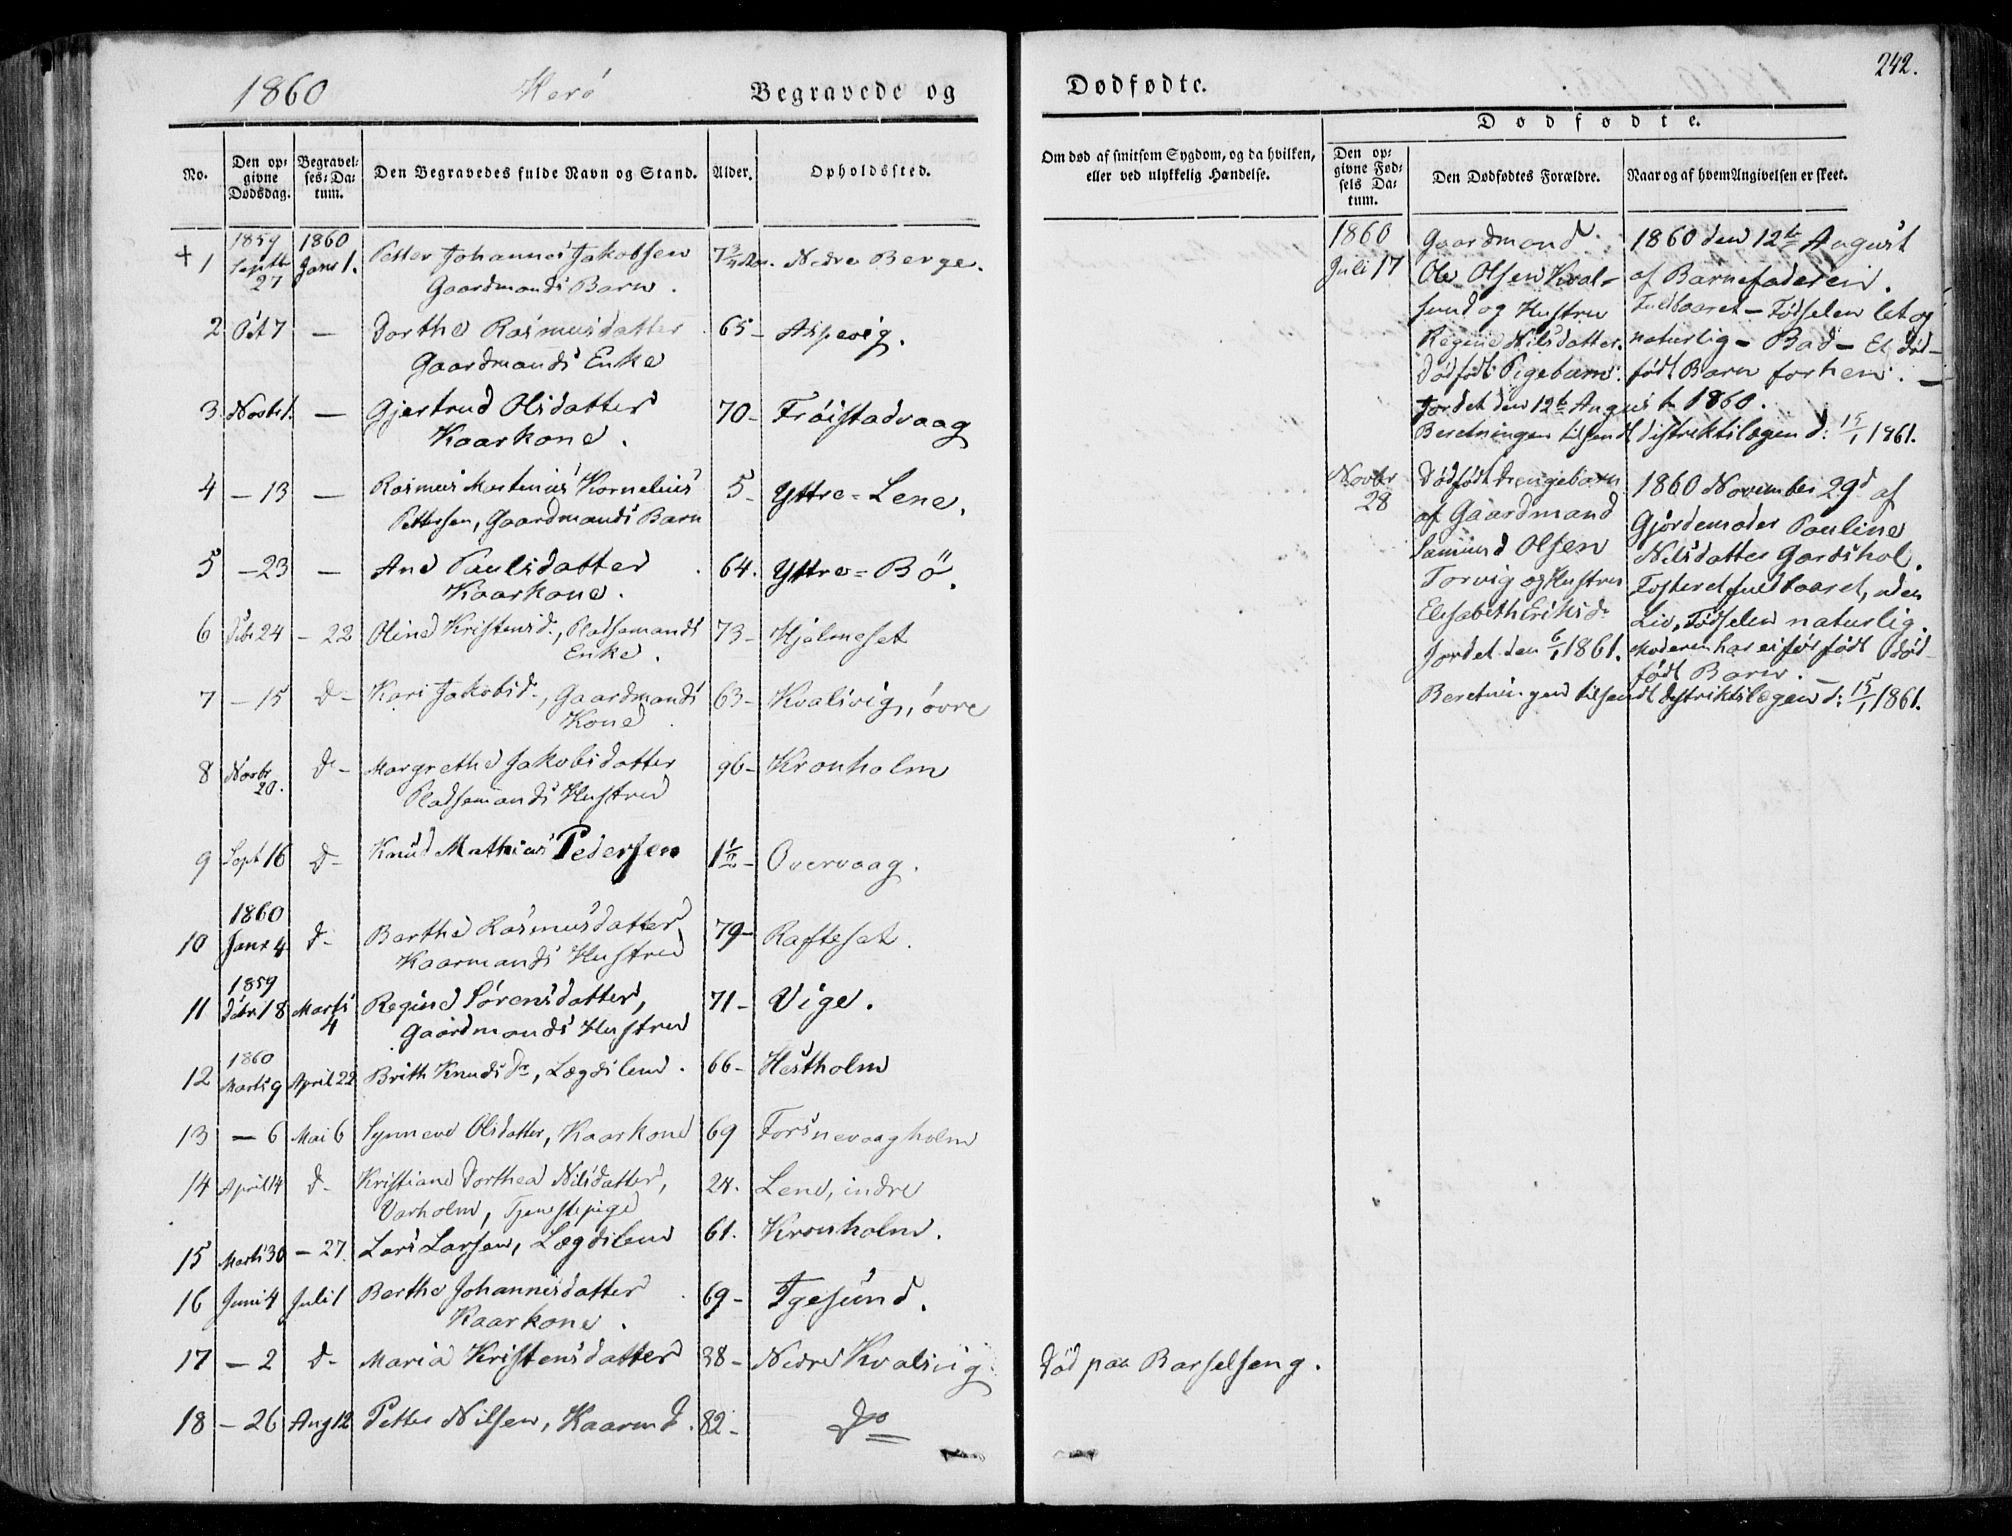 1860 Herö Begravede og
No. Den opgivne Dødsdag. Begravelses-Datum. Den Begravedes fulde Navn og Stand. Alder. Opholdssted.
+ 1 1859 Septbr 27 1860 Janr 1. Petter Johannes Jakobsen
Gaardmands Barn. Nedre Berge.
2 Oct 7 — Dorthe Rasmusdatter 65 - Aspevig.
Gaardmands Enke
3 Novbr 1. — Gjertrud Olsdatter 70 - Fröistadvaag
Kaarkone.
4 — 13 — Rasmus Martinus Kornelius 5 - Yttre-Lene.
Pettersen, Gaardmands Barn
5 — 23 — Ane Paulsdatter 64. Yttre-Bö.
Kaarkone.
6 Dcbr 24 — 22 Oline Kristensd., Pladsemands 73 - Hjelmeset
Enke.
7 — 15 do Kari Jakobsd., Gaardmands 63 - Kvalsvig, övre
Kone.
8 Novbr 20. do Margrethe Jakobsdatter 96 - Kronholm
Pladsemands Hustru
9 Sept 16 do Knud Mathias Pedersen Overvaag.
10 1860 Janr 4 do Berthe Rasmusdatter 79 - Rafteset.
Kaarmands Hustru
11 1859 Dcbr 18 Marts 4 Regine Sörensdatter, 71 - Vige.
Gaardmands Hustru
12 1860 Marts 9 April 22 Brith Knudsdr, Lægdslem. 66 - Hestholm
13 — 6 Mai 6 Synneve Olsdatter, Kaarkone 69 Forsnevaagholm
14 April 14 do Kristiane Dorthea Nilsdatter, 24. Lene, indre
Varholm, Tjenestepige
15 Marts 30 — 27. Lars Larsen, Lægdslem 61. Kronholm.
16 Juni 4 Juli 1 Berthe Johannesdatter 69 - Igesund.
Kaarkone.
17 — 2 do Maria Kristensdatter 38 - Nedre Kvalsvig.
18 — 26 Aug 12 Petter Nilsen, Kaarmd. 82 - Do
242.
Dødfødte.
Om død af smitsom Sygdom, og da hvilken, eller ved ulykkelig Hændelse.
Dødfødte.
Den opgivne Fødsels Datum. Den Dødfødtes Forældre. Naar og af hvem Angivelsen er skeet.
1860 Juli 17 Gaardmand 1860 den 12te August
Ole Olsen Kval- af Barnefaderen.
sund og Hustru Fuldbaaret - Födselen let og
Regine Nilsdatter. naturlig - Bad - Et död-
Dödfödt Pigebarn. födt Barn forhen. —
Jordet den 12te August 1860.
Beretningen tilsendt Distriktslægen d: 15/1 1861.
Novbr 28 Dödfödt Drengebarn 1860 November 29d af
af Gaardmand Gjordemoder Pauline
Samund Olsen Nilsdatter Gardshol.
Torvig og Hustru Fosteret fuldbaaret, uden
Elisabeth Eriksd. Liv, Födselen naturlig.
Jordet den 6/1 1861. Moderen har ei för födt död-
födt Barn.
Beretningen tilsendt Distriktslægen d: 15/1 1861.
Död paa Barselseng.